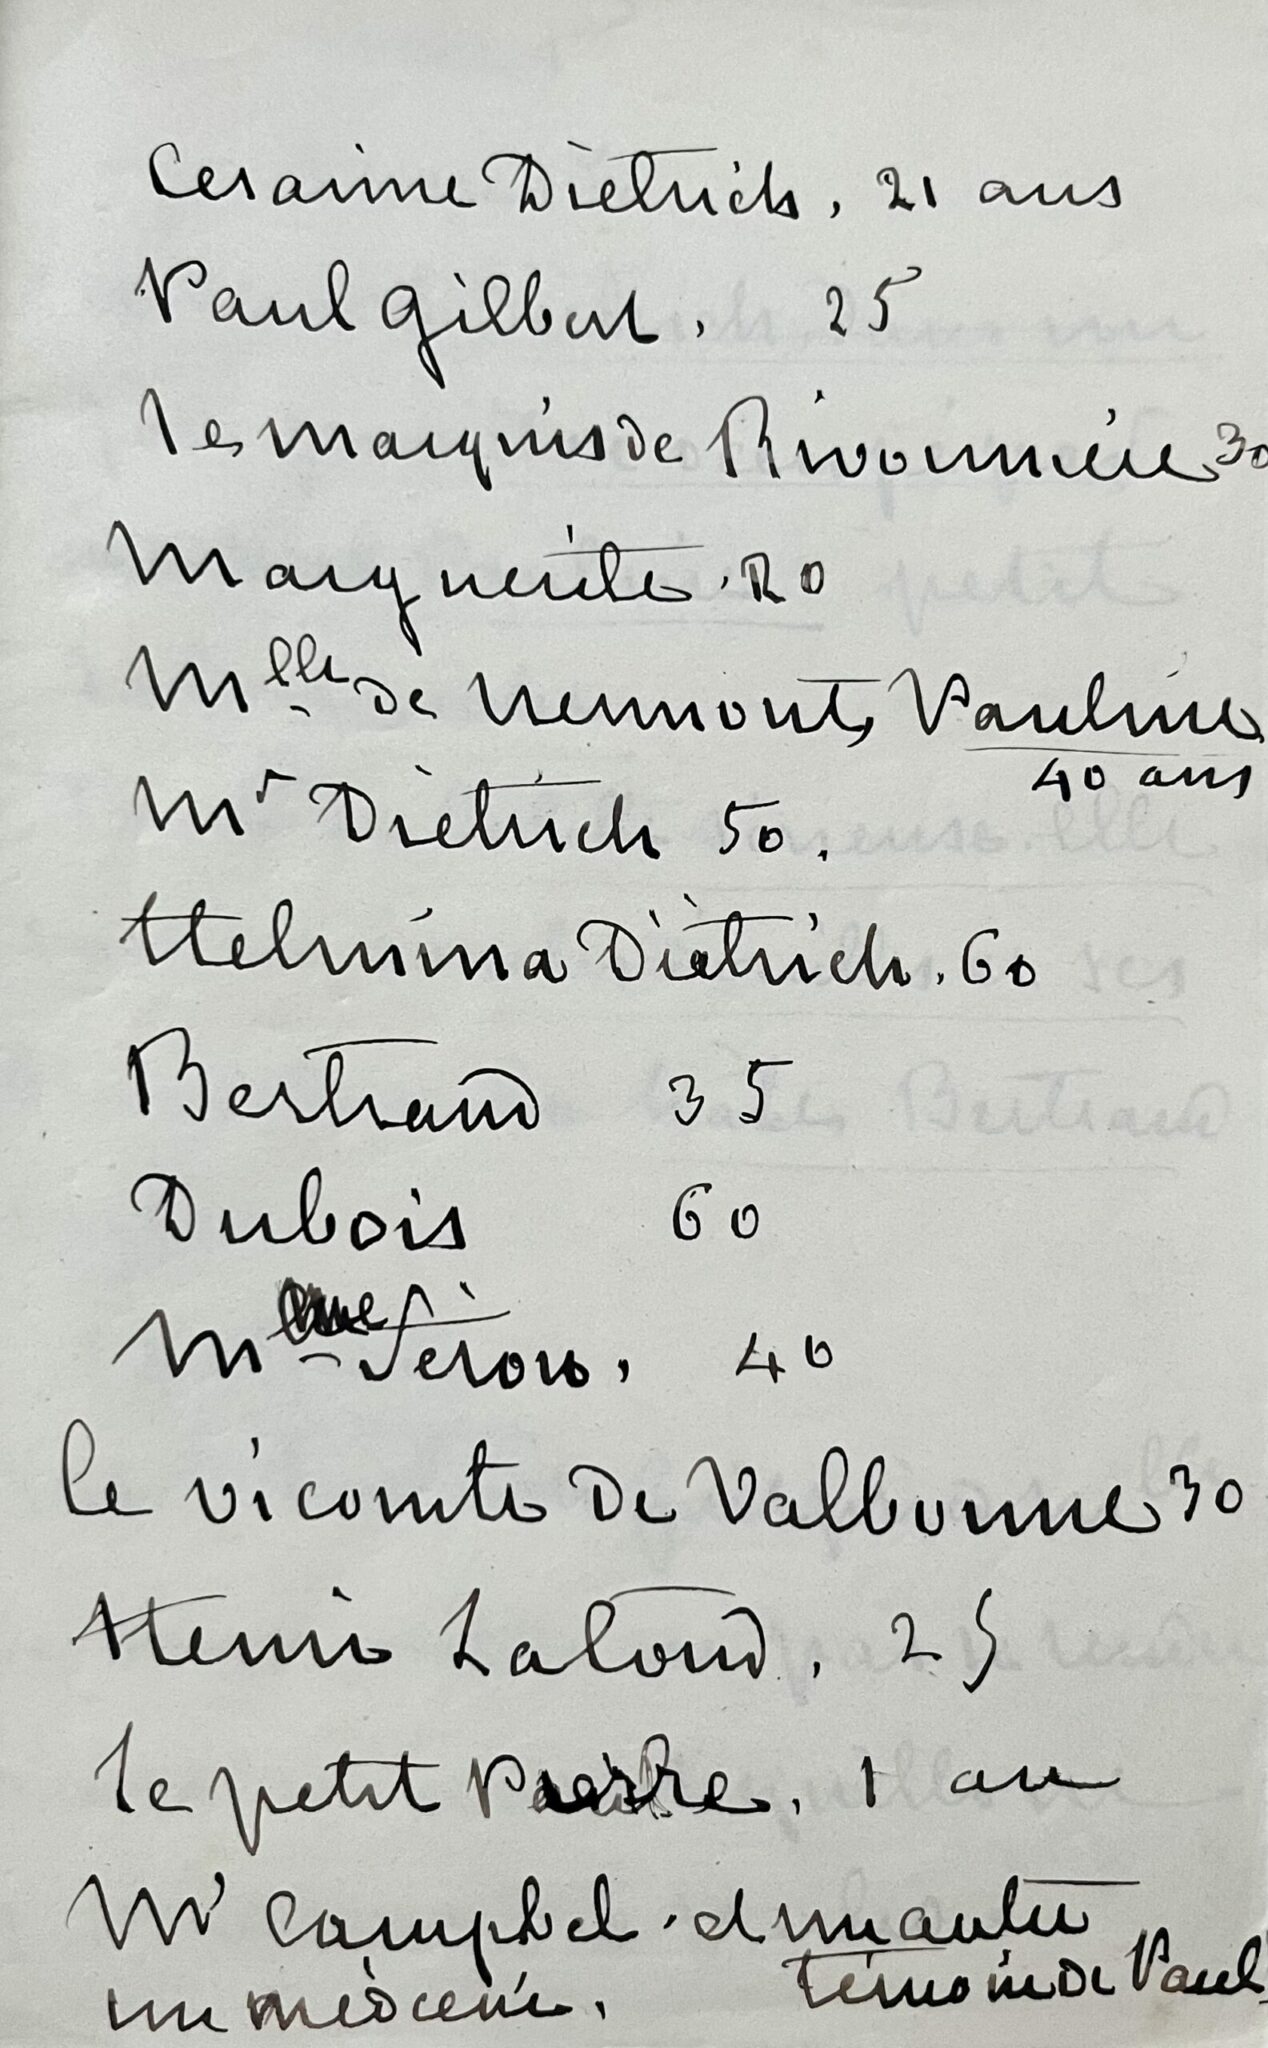 Cesarine Dietrich, 21 ans
Paul Gilbert, 25
le marquis de Rivonnière 30
Marguerite. 20
Mlle de Nermont, Pauline
40 ans
Mr Dietrich 50.
Helmina Dietrich. 60
Bertrand 35
Dubois 60
Mme Féron, 40
le vicomte de Valbonne 30
Henri Latoud, 25
le petit Pierre, 1 an
Mr Campbel. et un autre
témoin de Paul,
un médecin.